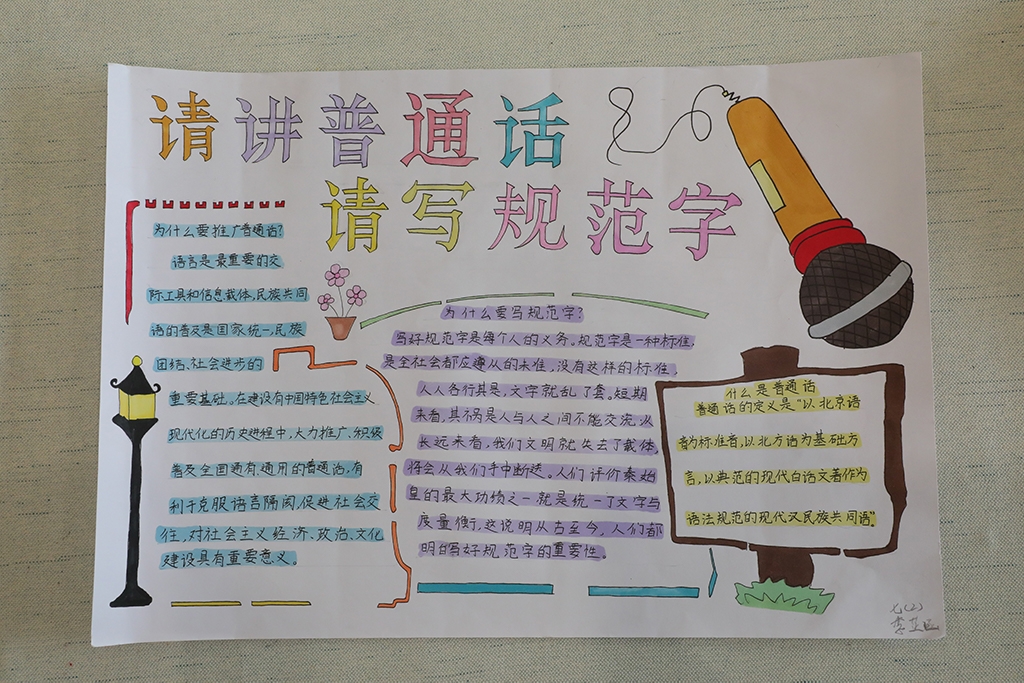 请讲普通话
请写规范字
为什么要推广普通话?
语言是最重要的交
际工具和信息载体,民族共同
语的普及是国家统一,民族
团结、社会进步的
重要基础。在建设有中国特色社会主义
现代化的历史进程中,大力推广、积极
普及全国通有通用的普通话,有
利于克服语言隔阂,促进社会交
往,对社会主义经济、政治、文化
建设具有重要意义。
为什么要写规范字?
写好规范字是每个人的义务。规范字是一种标准,
是全社会都应遵从的标准,没有这样的标准,
人人各行其是,文字就乱了套。短期
来看,其祸是人与人之间不能交流,从
长远来看,我们文明就失去了载体,
将会从我们手中断送。人们评价秦始
皇的最大功绩之一就是统一了文字与
度量衡,这说明从古至今,人们都
明白写好规范字的重要性。
什么是普通话
普通话的定义是“以北京语
音为标准音,以北方话为基础方
言,以典范的现代白话文著作为
语法规范的现代汉民族共同语”。
七(2)
李